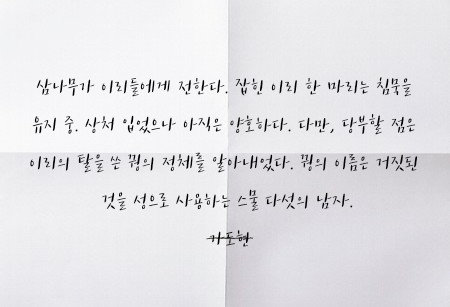 삼나무가 이리들에게 전한다. 잡힌 이리 한 마리는 침묵을
유지 중. 상처 입었으나 아직은 양호하다. 다만, 당부할 점은
이리의 탈을 쓴 꿩의 정체를 알아내었다. 꿩의 이름은 거짓된
것을 성으로 사용하는 스물 다섯의 남자.
가도현